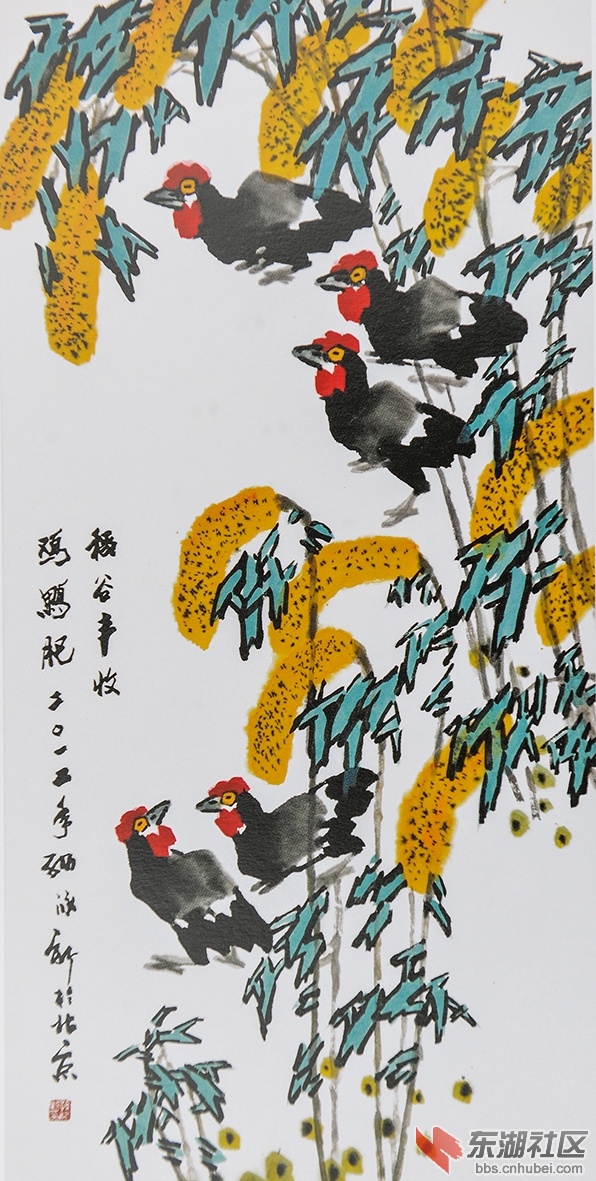 稻谷丰收
鸡鸭肥 二〇一五年 於北京
东湖社区
bbs.cnhubei.com